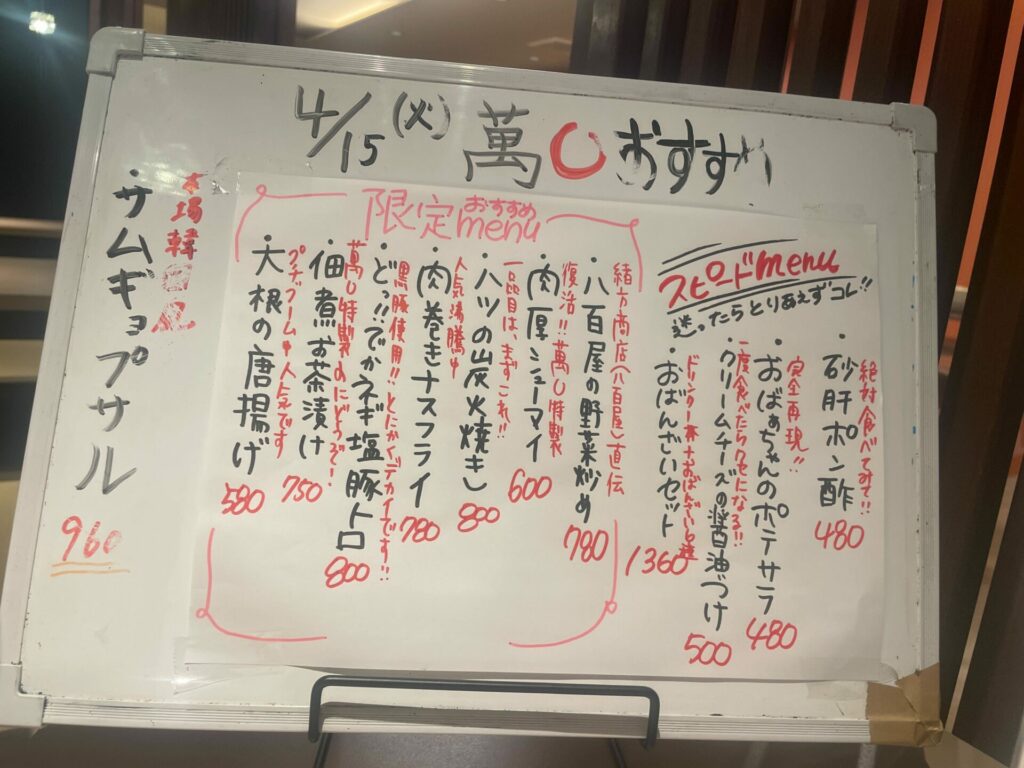 4/15(火) 萬〇おすすめ
スピードmenu
迷ったらとりあえずコレ!!
絶対食べてみて!!
・砂肝ポン酢 480
完全再現!!
・おばぁちゃんのポテサラ 480
一度食べたらクセになる!!
・クリームチーズの醤油づけ 500
・おばんざいセット 1360
限定おすすめmenu
緒方商店(八百屋)直伝
・八百屋の野菜炒め 780
復活!!萬〇特製
・肉厚シューマイ 600
一品目は、まずこれ!!
・ハツの炭火焼き 800
人気沸騰中
・肉巻きナスフライ 780
黒豚使用!!とにかくデカイです!!
・どっ!!でかネギ塩豚トロ 800
萬〇特製
・佃煮お茶漬け 750
プチブーム中 人気です
・大根の唐揚げ 580
本場韓国風
・サムギョプサル
960